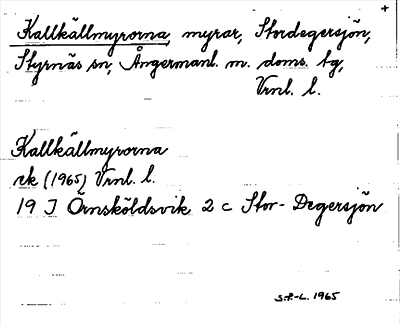 Kallkällmyrorna, myrar, Stordegersjön,
Styrnäs sn, Ångermanl. m. doms. tg,
Vrnl. l.
Kallkällmyrorna
ek (1965) Vrnl. l.
19 J Örnsköldsvik 2 c Stor-Degersjön
S.F.-L. 1965